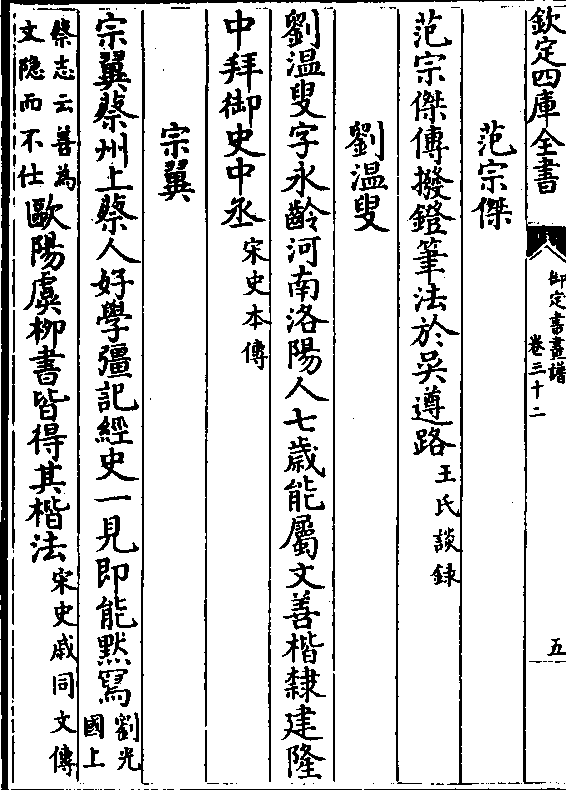 欽定四庫全書
御定書畫譜
卷三十二
五
范宗傑
范宗傑傳撥鐙筆法於吳遵路王氏談錄
劉溫叟
劉溫叟字永齡河南洛陽人七歲能屬文善楷隸建隆
中拜御史中丞宋史本傳
宗翼
宗翼蔡州上蔡人好學彊記經史一見即能默寫劉光國上
蔡志云善為文隐而不仕歐陽虞柳書皆得其楷法宋史戚同文傳